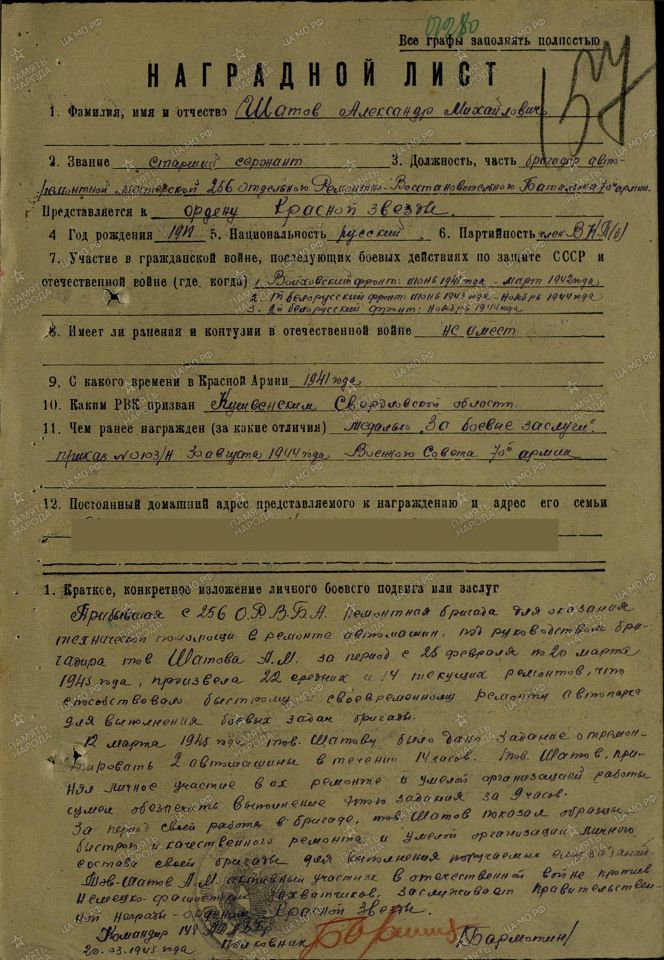 0280
Все графы заполнять полностью
157
НАГРАДНОЙ ЛИСТ
1. Фамилия, имя и отчество Шатов Александр Михайлович
2. Звание старший сержант 3. Должность, часть бригадир авто-
ремонтной мастерской 256 отдельного Ремонтно-Восстановительного Батальона 70й армии.
Представляется к ордену Красной звезды.
4 Год рождения 1911 5. Национальность русский 6. Партийность член ВКП(б)
7. Участие в гражданской войне, последующих боевых действиях по защите СССР и
отечественной войне (где, когда) 1. Волховский фронт: июнь 1941 года - март 1942 года
2. 1й Белорусский фронт: июнь 1943 года - ноябрь 1944 года
3. 2й Белорусский фронт: ноябрь 1944 года
8. Имеет ли ранения и контузии в отечественной войне не имеет
9. С какого времени в Красной Армии 1941 года
10. Каким РВК призван Кушвенским Свердловской области.
11. Чем ранее награжден (за какие отличия) медалью "За боевые заслуги".
приказ №0103/Н 30 августа 1944 года Военного Совета 70й армии
12. Постоянный домашний адрес представляемого к награждению и адрес его семьи
1. Краткое, конкретное изложение личного боевого подвига или заслуг
Прибывшая с 256 О.Р.В.Б.А. ремонтная бригада для оказания
технической помощи в ремонте автомашин, под руководством бри-
гадира тов Шатова А.М. за период с 25 февраля по 20 марта
1945 года, произвела 22 средних и 14 текущих ремонтов, что
способствовало быстрому и своевременному ремонту автопарка
для выполнения боевых задач бригады.
12 марта 1945 года тов. Шатову было дано задание отремон-
тировать 2 автомашины в течении 14 часов. Тов. Шатов, при-
няя личное участие в их ремонте и умелой организацией работы
сумел обеспечить выполнение этого задания за 9 часов.
За период своей работы в бригаде, тов. Шатов показал образцы
быстрого и качественного ремонта и умелой организации личного
состава своей бригады для выполнения поручаемых ему заданий
Тов. Шатов А.М. активный участник в отечественной войне против
Немецко-фашистских захватчиков, заслуживает Правительствен-
ной награды - орденом Красной Звезды.
Командир 148
20.03.1945 года Полковник /Бармотин/